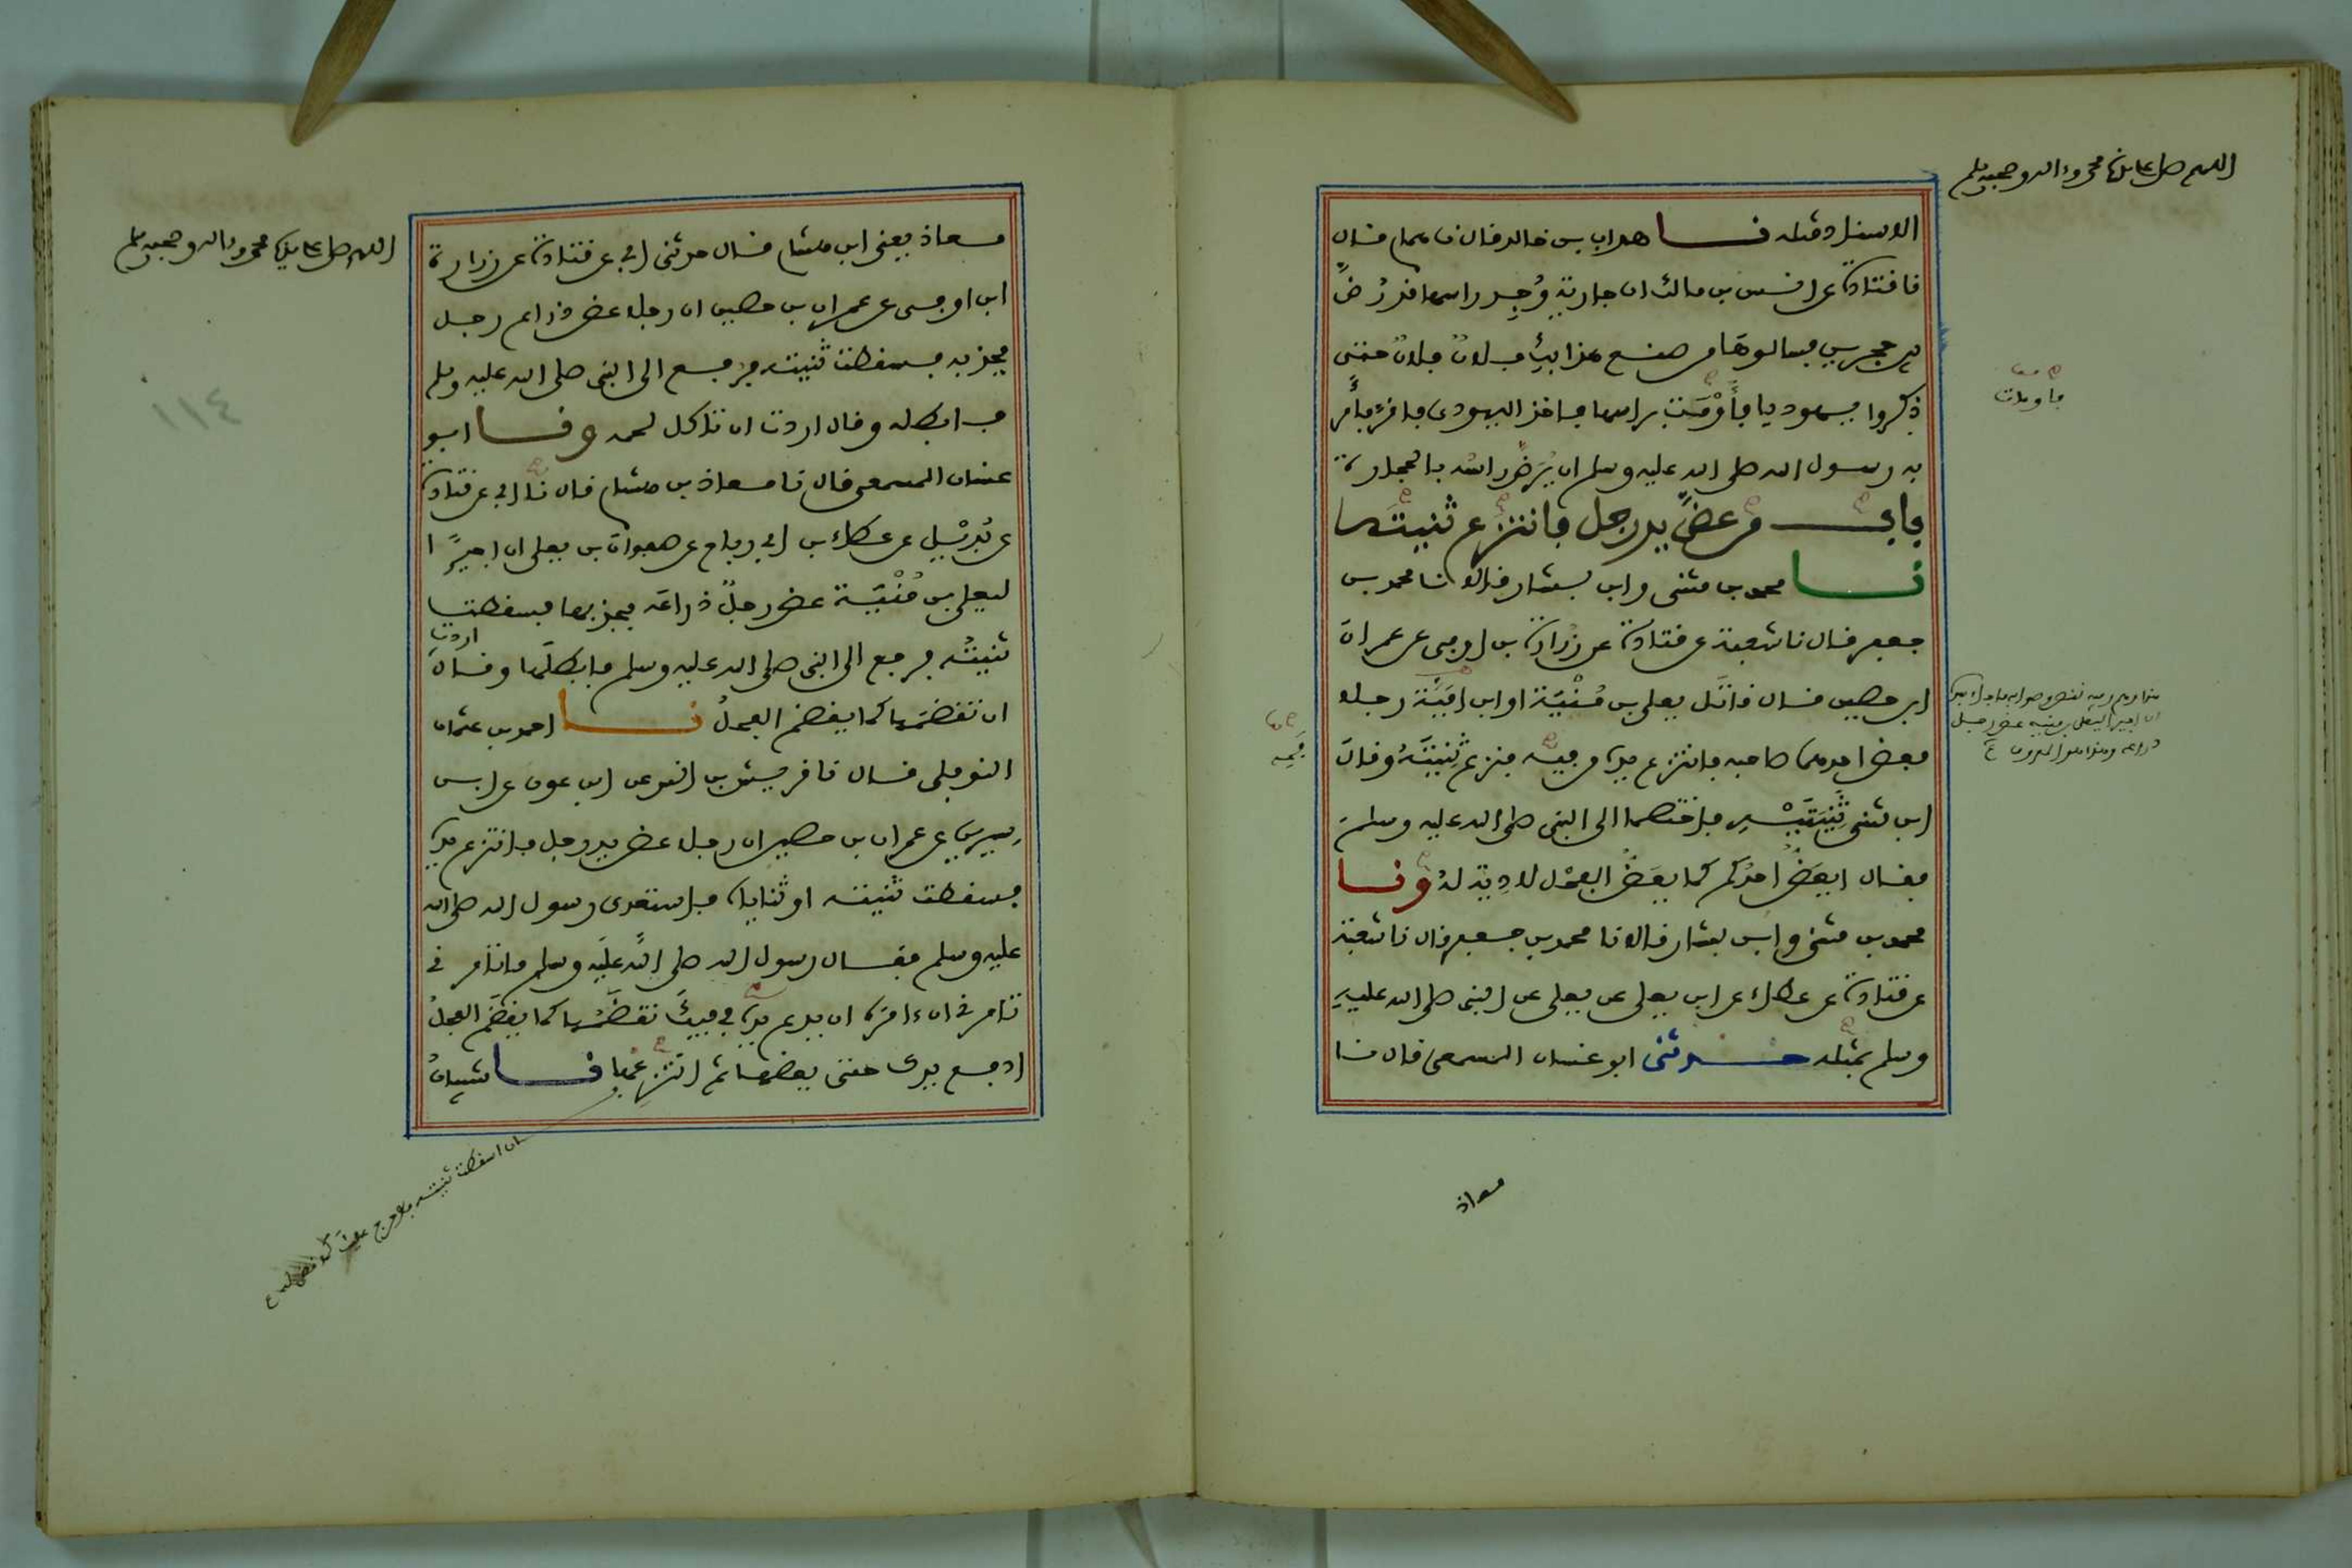 اللهم صل على سيدنا محمد وءاله وصحبه وسلم
الاسناد مثله نا هداب بن خالد قال نا همام قال
نا قتادة عن انس بن مالك ان جارية وُجد راسها قد رُضّ
بين حجرين فسالوها من صنع هذا بك فلان فلان حتى
ذكروا يهوديا فأَوْمَت براسها فاخذ اليهودى فاقر فأمر
به رسول الله صلى الله عليه وسلم ان يُرَضّ راسُه بالحجارة
باب من عضّ يد رجل فانتزع ثنيتَه
نا محمد بن مثنى وابن بشار قالا نا محمد بن
جعفر قال نا شعبة عن قتادة عن زُرارة بن اوفى عن عمران
ابن حصين قال قاتل يعلى بن مُنْيَة او ابن امَيّة رجلا
فعض احدهما صاحبه فانتزع يده من فيه فنزع ثنيتَهُ وقال
ابن مثنى ثنيتَيْه فاختصما الى النبى صلى الله عليه وسلم
فقال ايعَضّ احدُكم كما يعَضّ الفحْل لا دِيَة لهُ ونا
محمد بن مثنى وابن بشار قالا نا محمد بن جعفر قال نا شعبة
عن قتادة عن عطاء عن ابن يعلى عن يعلى عن النبى صلى الله عليه
وسلم بمثله حدثنى ابو غسان المسمعى قال نا
فاومات
فمه
ان اجيرا ليعلى بن منية عض رجل
ذراعه وهذا هو المعروف
معاذ
اللهم صل على سيدنا محمد وءاله وصحبه وسلم
١١٤
معاذ يعنى ابن هشام قال حدثنى ابى عن قتادة عن زرارة
ابن اوفى عن عمران بن حصين ان رجلا عض ذراع رجل
فجذبه فسقطت ثنيته فرفع الى النبى صلى الله عليه وسلم
فابطله وقال اردت ان تاكل لحمه ونا ابو
غسان المسمعى قال نا معاذ بن هشام قال نا ابى عن قتادة
عن بُدَيْل عن عطاء بن ابى رباح عن صفوان بن يعلى ان اجيرًا
ليعلى بن مُنْيَة عض رجلٌ ذراعَه فجذبها فسقطت
ثنيتُه فرفع الى النبى صلى الله عليه وسلم فابطلَها وقال اردت
ان تقضمَها كما يقضم الفحلُ نا احمد بن عثمان
النوفلى قال نا قريش بن انس عن ابن عون عن ابن
سيرين عن عمران بن حصين ان رجلا عض يد رجل فانتزع يده
فسقطت ثنيته او ثناياه فاستعدى رسول الله صلى الله
عليه وسلم فقال رسول الله صلى الله عليه وسلم ما تامرنى
تامرنى ان ءامرَه ان يدع يده فى فيك تقضَمُها كما يقضَم الفحلُ
ادفع يدك حتى يعضها ثم انتزِعْها نا شيبانُ